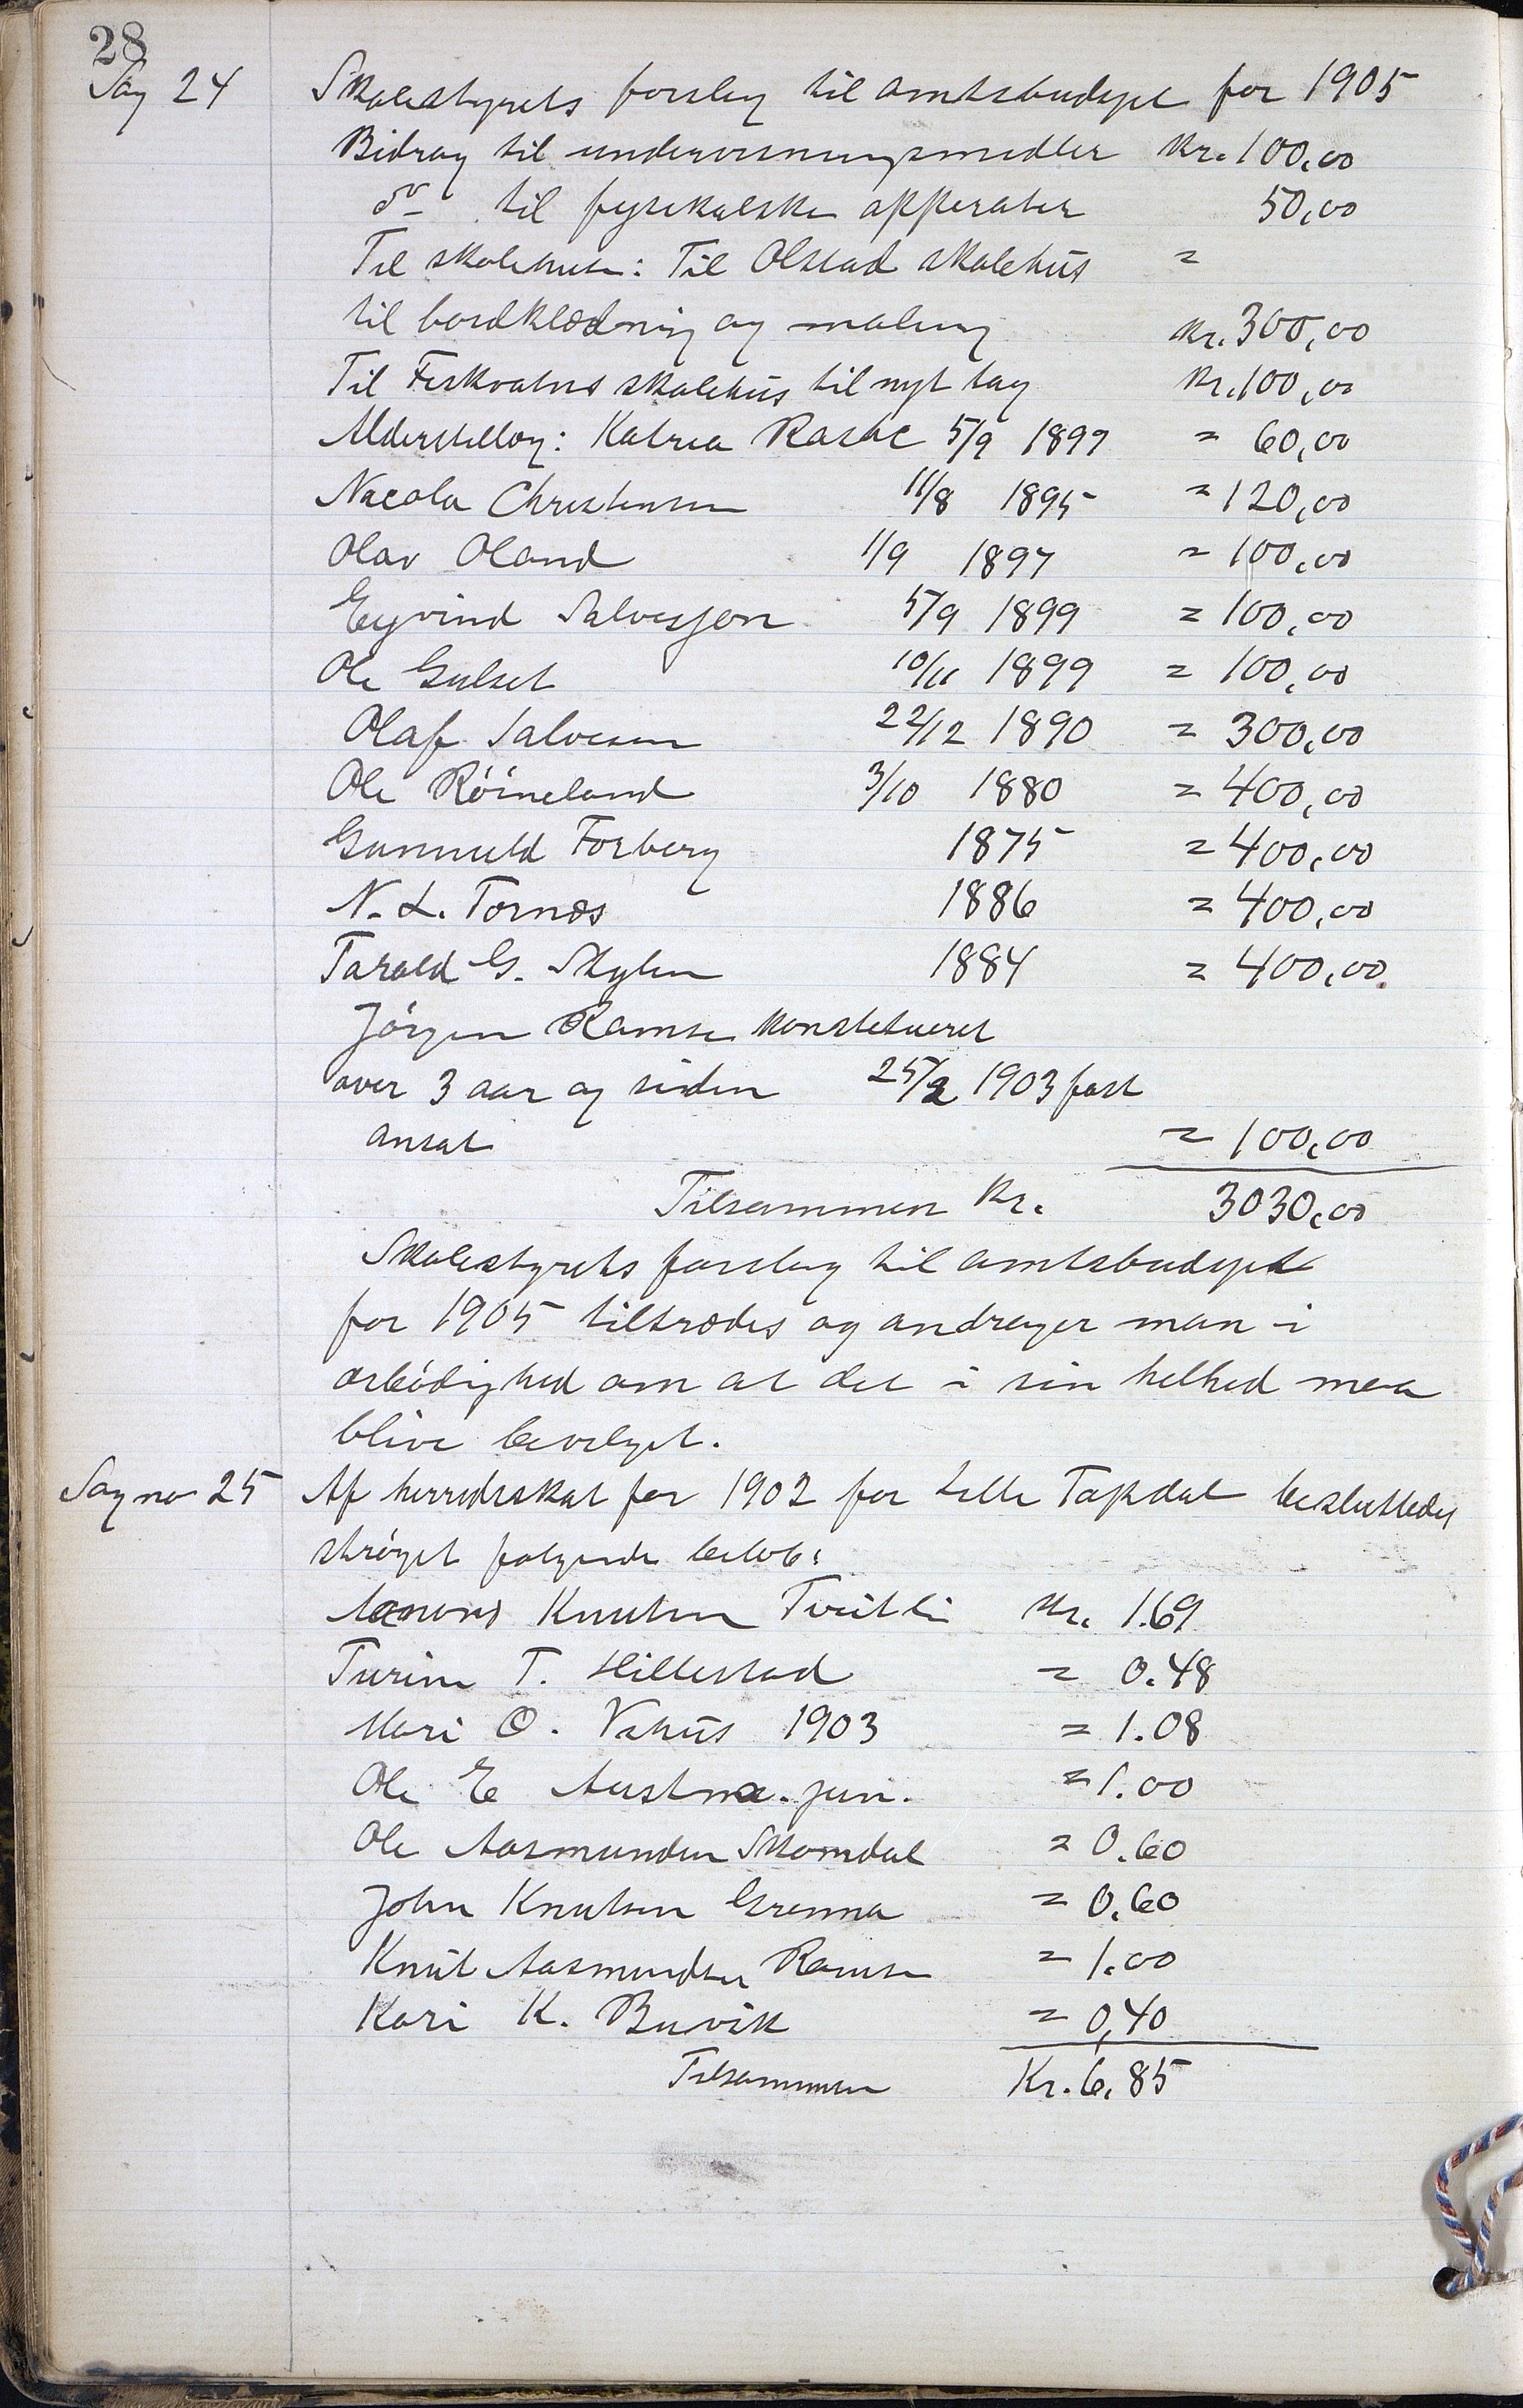 28
Sag 24 Skolestyrets forslag til amtsbudget for 1905
Bidrag til undervisningsmidler Kr. 100,00
do til fysikalske apperater 50,00
Til skolehuse: Til Olstad skolehus =
til bordklædning og maling Kr. 300,00
Til Fiskvatns skolehus til nyt tag Kr. 100,00
Alderstillæg: Katrea 5/9 1899 = 60,00
Nicolai Christensen 11/8 1895 = 120,00
Olav Oland 1/9 1897 = 100,00
Eyvind Salvesjen 5/9 1899 = 100,00
Ole Gulset 10/11 1899 = 100,00
Olaf Salvesen 22/12 1890 = 300,00
Ole Röineland 3/10 1880 = 400,00
Gunnuld Forberg 1875 = 400,00
N. L. Tornæs 1886 = 400,00
Tarald G. 1884 = 400,00
Jörgen Ramse konstitueret
over 3 aar og siden 25/2 1903 fast
ansat = 100,00
Tilsammen Kr. 3030,00
Skolestyrets forslag til amtsbudget
for 1905 tiltrædes og andrager man i
ærbödighed om at det i sin helhed maa
blive bevilget.
Sag no 25 Af herredsskat for 1902 for Lille Topdal besluttedes
ströget følgende beløb:
Knutsen Tveitli Kr. 1.69
Turine T. Hillestad = 0.48
Mari O. Vehus 1903 = 1.08
Ole E jun. = 1.00
Ole Aasmundsen Skomdal = 0.60
John Knutsen Grenna = 0.60
Knut Aasmundsen Ramse = 1.00
Kari K. Buvik = 0,40
Tilsammen Kr. 6,85